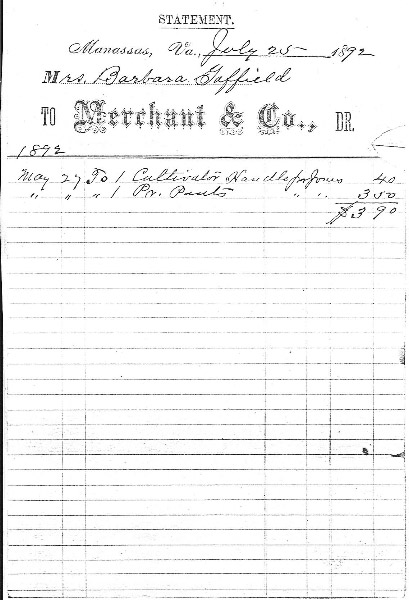 STATEMENT.
Manassas, Va., July 25 1892
Mrs. Barbara Gaffield
TO Merchant & Co., DR.
1892
May 27 To 1 Cultivator Handle for Jones 40
" " " 1 Pr. Pants " " 3 50
$3 90